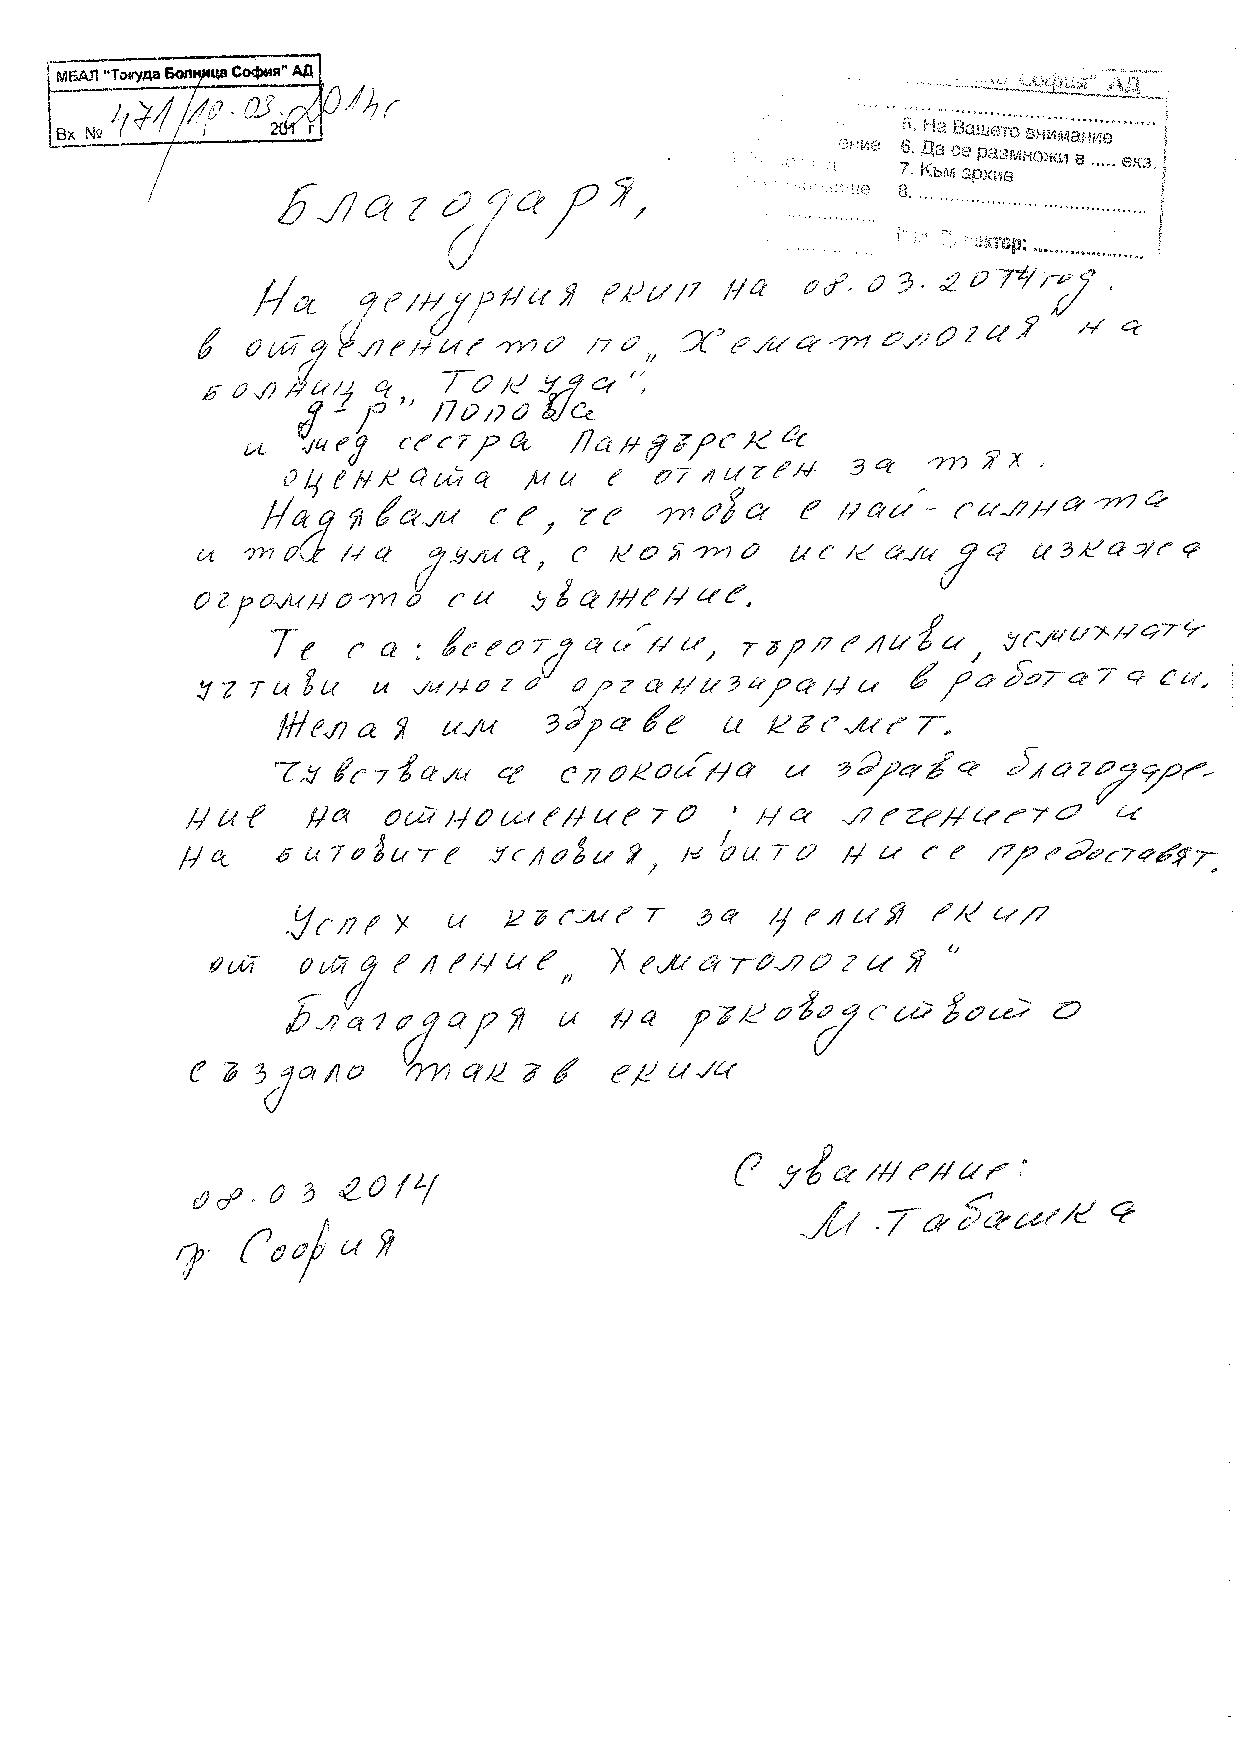 МБАЛ "Токуда Болница София" АД
Вх № 471/10.03.2014г
201 г
София" АД
5. На Вашето внимание
ение 6. Да се размножи в ..... екз.
7. Към архив
8. ........
Благодаря,
На дежурния екип на 08.03.2014 год.
в отделението по „Хематология" на
болница „Токуда".
д-р" Попова
и мед сестра Пандърска
оценката ми е отличен за тях.
Надявам се, че това е най-силната
и точна дума, с която искам да изкажа
огромното си уважение.
Те са: всеотдайни, търпеливи, усмихнати
учтиви и много организирани в работата си.
Желая им здраве и късмет.
Чувствам се спокойна и здрава благодаре-
ние на отношението, на лечението и
на битовите условия, които ни се предоставят.
Успех и късмет за целия екип
от отделение „Хематология"
Благодаря и на ръководството
създало такъв екип
08.03 2014
С уважение:
гр София
М. Табашка